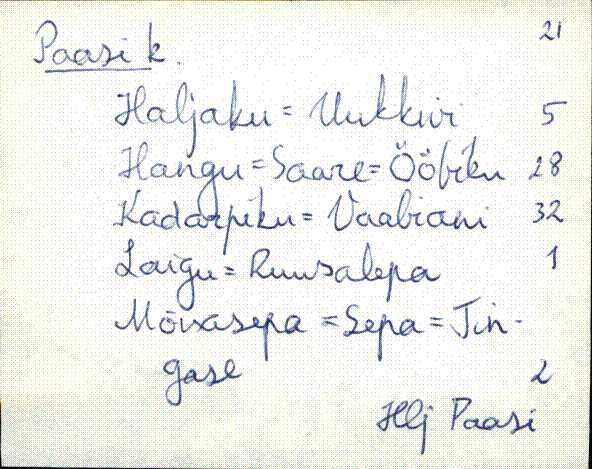 21
Paasi k.
Haljaku = Uukkivi 5
Hangu = Saare = Ööbiku 28
Kadarpiku = Vaabiani 32
Laigu = Ruusalepa 1
Mõisasepa = Sepa = Tin-
gase 2
Hlj Paasi